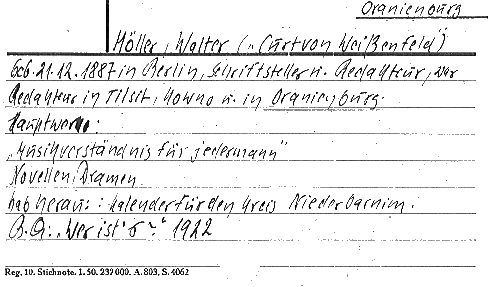 Oranienburg
Möller, Walter („Curt von Weißenfeld")
Geb. 21.12.1887 in Berlin, Schriftsteller u. Redakteur, war
Redakteur in Tilsit, Kowno u. in Oranienburg.
Hauptwerke:
„Musikverständnis für jedermann"
Novellen, Dramen
hab heraus: Kalender für den Kreis Niederbarnim.
B.Q.: „Wer ist's?" 1922
Reg. 10. Stichnote. 1. 50. 239000. A. 803, S. 4062